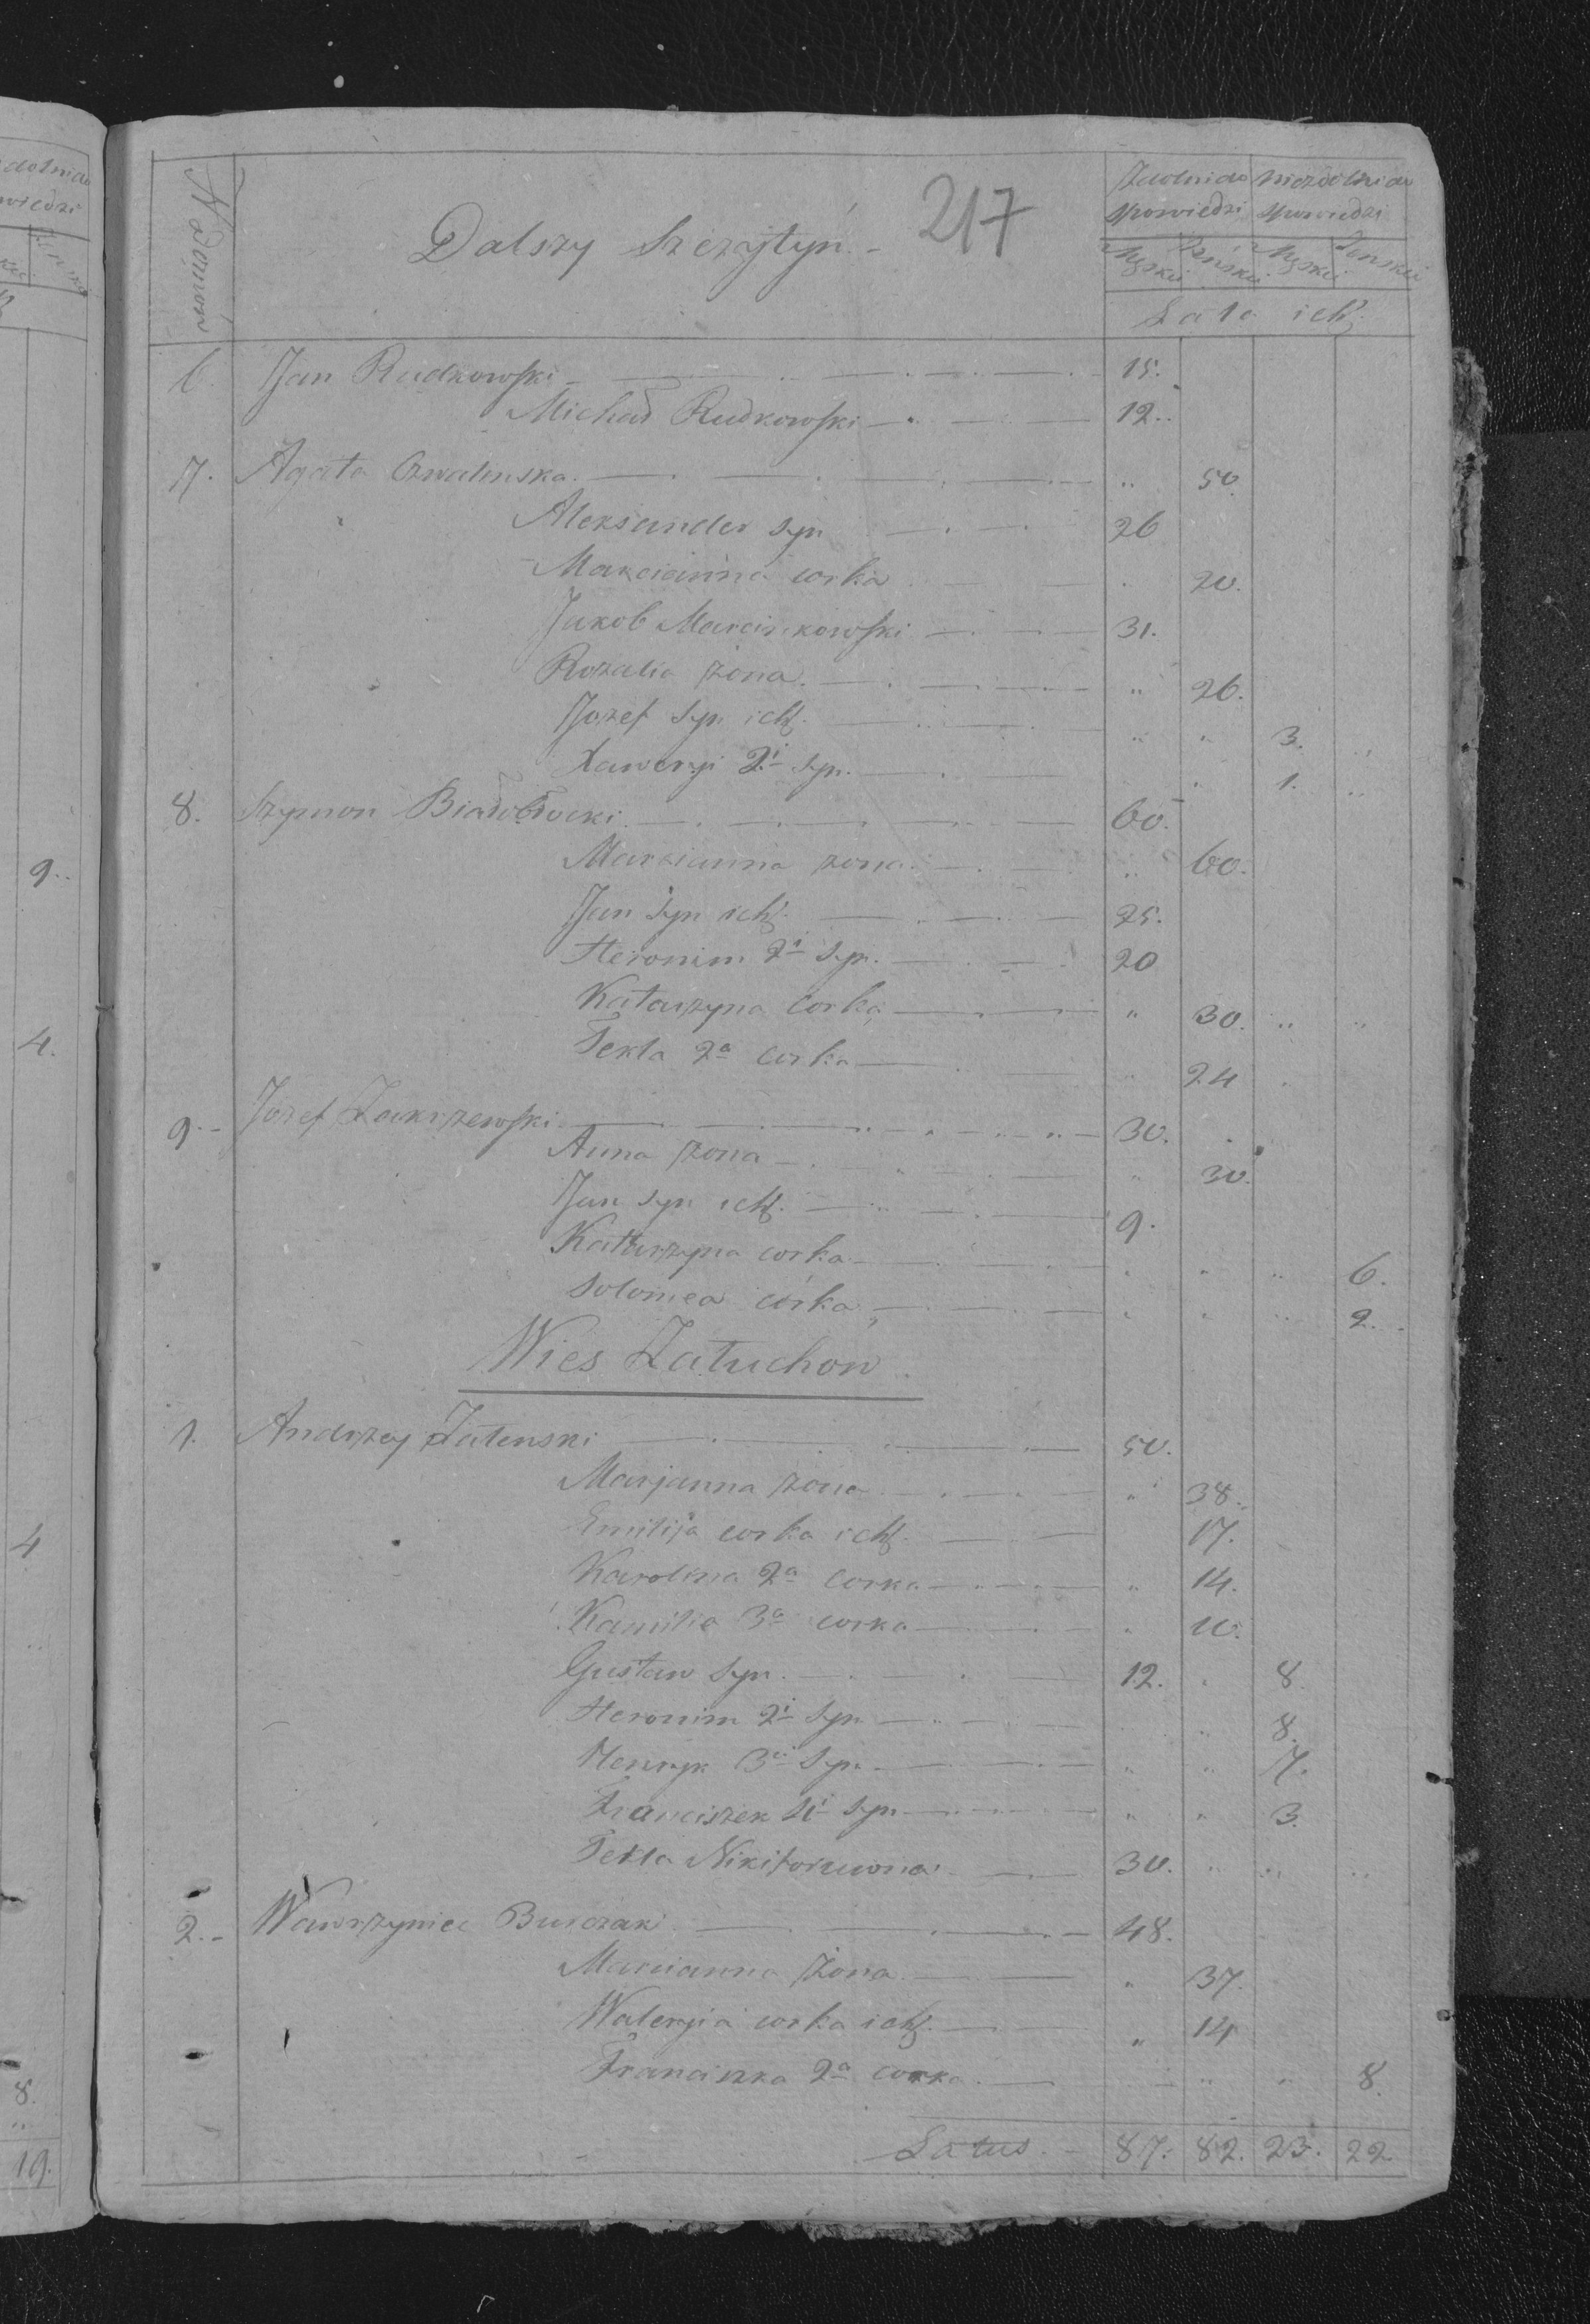 dolnido
wiedzi
9..
4.
4
8.
19.
N Domów
Dalszy Szczytyń. -
217
Zdolni do niezdolni do
spowiedzi spowiedzi
Męskii Żeńskii Męskii Żenskii
Lata ich
6. Jan Rudkowski 15.
Michał Rudkowski 12..
7. Agata 50.
Aleksander syn 26
Marcianna corka 20.
Jakob Marcinkowski 31.
Rozalia żona. " 26.
Jozef syn ich " " 3. ..
Xawery 2i syn. " 1. ..
8. Szymon Białobłocki. 60.
Marcianna żona. .. 60.
Jan syn ich 25.
Heronim 2i syn. 20
Katarzyna corka " 30. .. ..
Tekla 2a corka " 24
9.- Jozef Zakrzewski 30.
Anna żona " 30.
Jan syn ich. 9.
Katarzyna corka " " .. 6.
Solomea córka " " .. 2..
Wies Zatuchow
1. Andrzey Zalenski 50.
Marjanna żona " 38.
Emilija corka ich 17.
Karolina 2a corka " 14.
Kamilia 3a corka " 10.
Gustaw syn. 12. . 8.
Heronim 2i syn .. 8.
Henryk 3i syn. " " 7.
Franciszek 4i syn " " 3.
Tekla 30. .. .. ..
2.- Wawrzyniec Burczak 48.
Marcianna żona " 37.
Waleryia corka ich " 14
Franciszka 2a corka. .. .. " 8.
Latus. - 87. 82. 23. 22